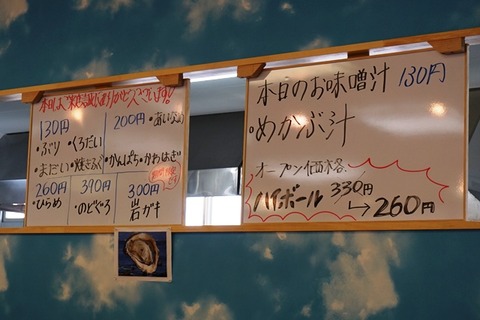 130円
・ぶり・くろだい
・まだい・焼きふぐ
200円
・あいなめ
・かんぱち・かわはぎ
260円
・ひらめ
390円
・のどぐろ
300円
岩ガキ
本日のお味噌汁 130円
・めかぶ汁
オープン価格
ハイボール 330円
→260円